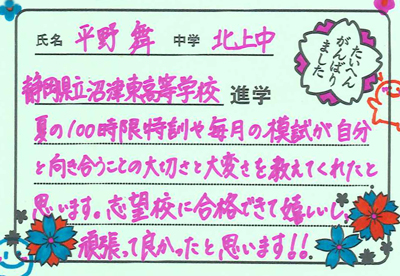 氏名 平野 舞 中学 北上中
たいへん
がんばり
ました
静岡県立沼津東高等学校 進学
夏の100時限特訓や毎月の模試が自分
と向き合うことの大切さと大変さを教えてくれたと
思います。志望校に合格できて嬉しいし、
頑張って良かったと思います!!